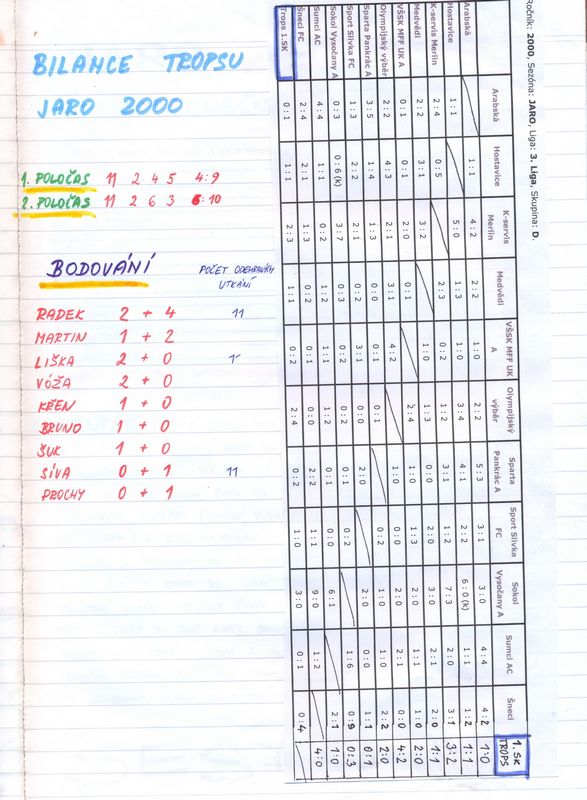 BILANCE TROPSU
JARO 2000
1. POLOČAS 11 2 4 5 4:9
2. POLOČAS 11 2 6 3 6:10
BODOVÁNÍ
POČET ODEHRANÝCH
UTKÁNÍ
RADEK 2 + 4 11
MARTIN 1 + 2
LIŠKA 2 + 0
VÓŽA 2 + 0
KŘEN 1 + 0
BRUNO 1 + 0
ŠUK 1 + 0
SÍVA 0 + 1 11
PROCHY 0 + 1
Ročník: 2000, Sezóna: JARO, Liga: 3. Liga, Skupina: D.
Arabská Hostavice K-servis Merlin Medvědi VŠSK MFF UK A Olympijský výběr Sparta Pankrác A Sport Slivka FC Sokol Vysočany A Sumci AC Šneci 1.SK TROPS
Arabská 1:1 4:2 2:2 1:0 2:2 5:3 3:1 3:0 4:4 4:2 1:0
Hostavice 1:1 5:0 1:3 0:2 3:4 4:1 2:2 6:0(k) 1:1 1:2 1:1
K-servis Merlin 2:4 0:5 2:3 0:2 1:2 3:1 1:2 7:3 2:0 3:1 3:2
Medvědi 2:2 3:1 3:2 1:0 1:3 0:0 2:0 3:0 1:1 2:0 1:1
VŠSK MFF UK A 0:1 0:1 2:0 0:1 2:4 1:0 1:3 2:0 2:1 1:0 2:0
Olympijský výběr 2:2 4:3 2:1 3:1 4:2 1:0 0:0 2:0 2:1 0:0 4:2
Sparta Pankrác A 3:5 1:4 1:3 0:0 0:1 0:1 0:2 1:0 0:0 2:2 2:0
Sport Slivka FC 1:3 2:2 2:1 0:2 3:1 0:0 2:0 2:0 0:0 1:1 0:1
Sokol Vysočany A 0:3 0:6(k) 3:7 0:3 0:2 0:2 0:1 0:2 1:6 0:9 0:3
Sumci AC 4:4 1:1 0:2 1:1 1:2 1:2 0:0 0:0 6:1 2:1 1:0
Šneci FC 2:4 2:1 1:3 0:2 0:1 0:0 2:2 1:1 9:0 1:2 4:0
Trops 1.SK 0:1 1:1 2:3 1:1 0:2 2:4 0:2 1:0 3:0 0:1 0:4